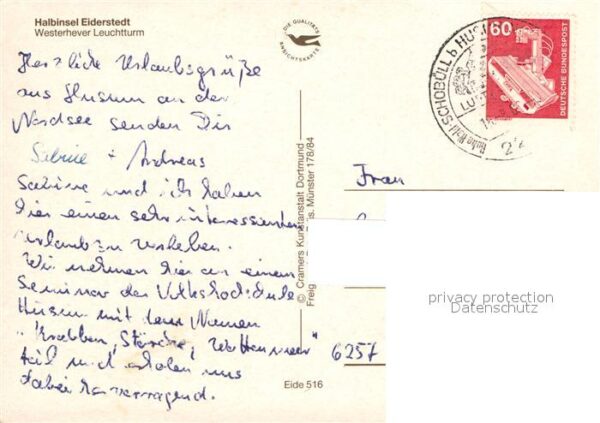 Halbinsel Eiderstedt
Westerhever Leuchtturm
DIE QUALITÄTS
ANSICHTSKARTE
Herzliche Urlaubsgrüße
aus Husum an der
Nordsee senden Dir
Sabine + Andreas
Sabine und ich haben
hier einen sehr interessanten
Urlaub zu verleben.
Wir nehmen hier an einem
Seminar der Volkshochschule
Husum mit dem Namen
"Krabben, Störche, Wattenmeer"
teil und erholen uns
dabei hervorragend.
© Cramers Kunstanstalt Dortmund
Freig. Münster 178/84
Eide 516
SCHOBÜLL b HUSUM
60
DEUTSCHE BUNDESPOST
Frau
6257
privacy protection
Datenschutz